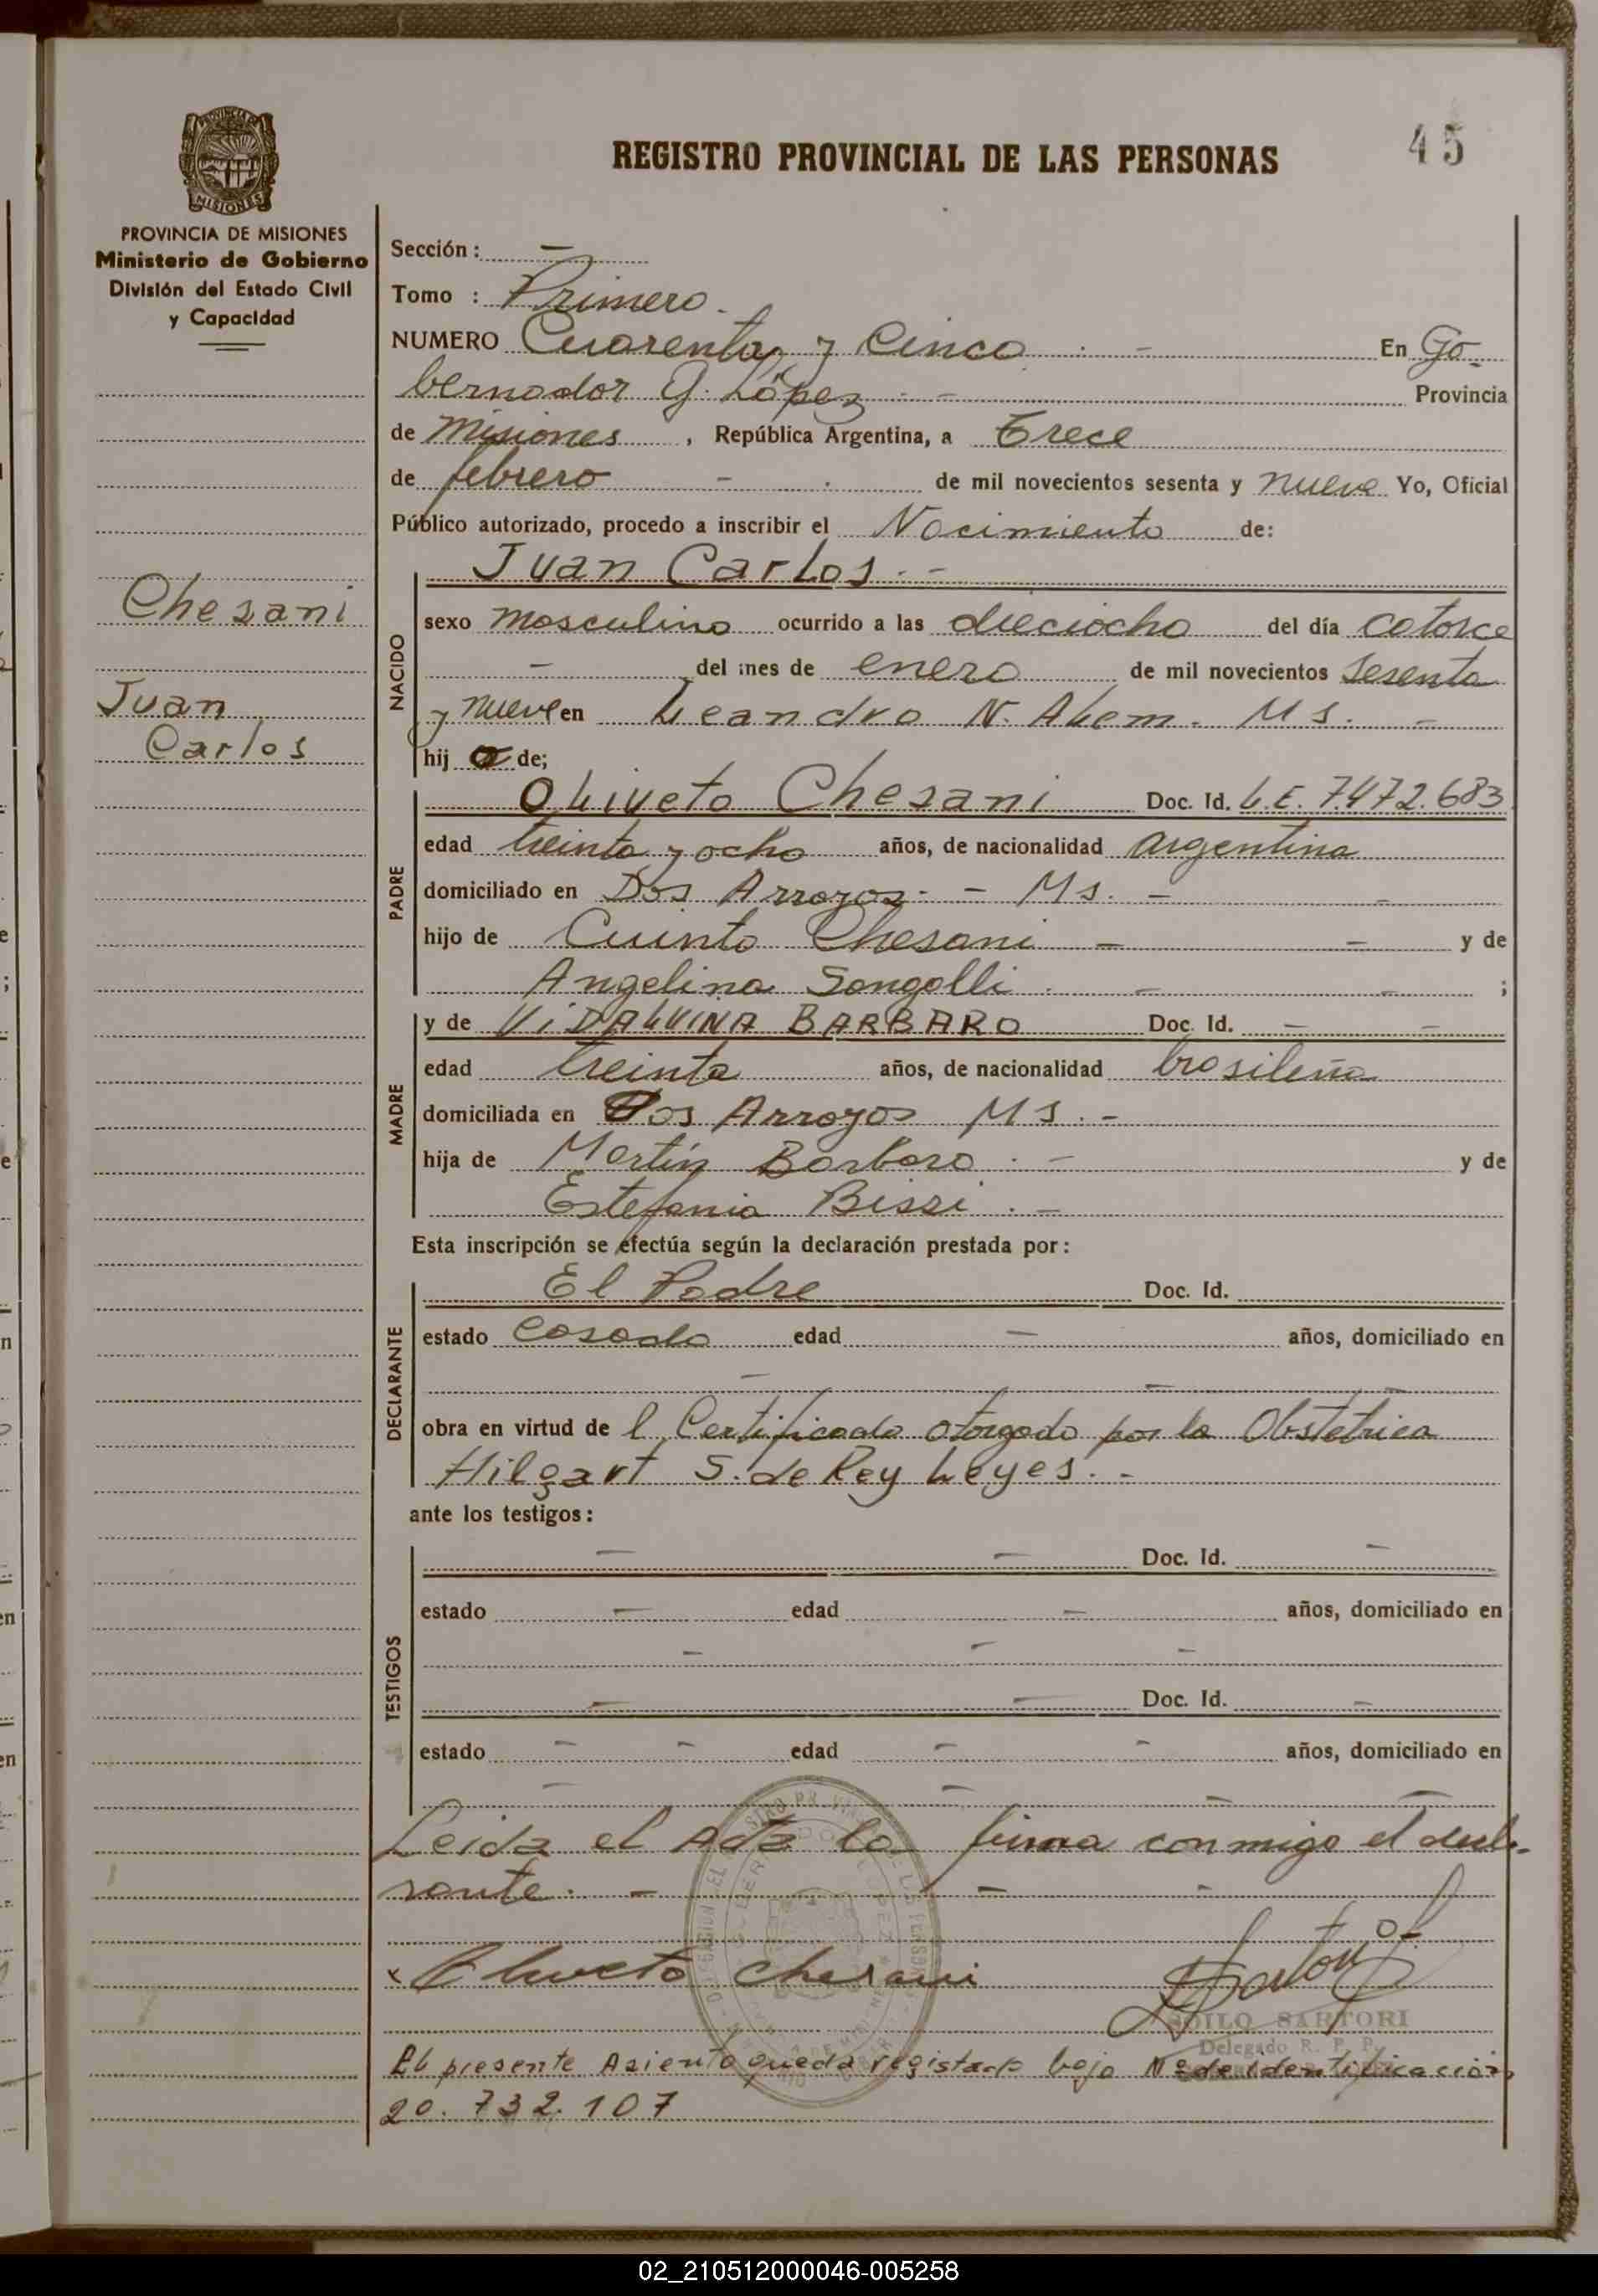 REGISTRO PROVINCIAL DE LAS PERSONAS
45
MISIONES
PROVINCIA DE MISIONES
Ministerio de Gobierno
División del Estado Civil
y Capacidad
Chesani
Juan
Carlos
Sección : -
Tomo : Primero.
NUMERO Cuarenta y Cinco . - En Go-
bernador G. López . - Provincia
de Misiones , República Argentina, a Trece
de febrero - . de mil novecientos sesenta y nueve Yo, Oficial
Público autorizado, procedo a inscribir el Nacimiento de:
NACIDO
Juan Carlos . -
sexo masculino ocurrido a las dieciocho del día catorce
- del mes de enero de mil novecientos sesenta
y nueve en Leandro N. Alem. Ms. -
hij o de;
PADRE
Oliveto Chesani Doc. Id. L.E. 7.472.683
edad treinta y ocho años, de nacionalidad argentina
domiciliado en Dos Arroyos. - Ms. - -
hijo de Cuinto Chesani - - y de
Angelina Songolli . - - ;
MADRE
y de VIDALVINA BARBARO Doc. Id. - -
edad treinta años, de nacionalidad brasileña
domiciliada en Dos Arroyos Ms. -
hija de Martín Barbaro . - y de
Estefania Bissi . -
Esta inscripción se efectúa según la declaración prestada por:
DECLARANTE
El Padre Doc. Id.
estado Casado edad - años, domiciliado en
- - -
obra en virtud de l Certificado otorgado por la Obstetrica
Hilgart S. de Rey Leyes. -
ante los testigos:
TESTIGOS
- - Doc. Id. -
estado - edad - años, domiciliado en
- - -
- - Doc. Id. -
estado - - edad - - años, domiciliado en
- - - -
Leida el Acta la firma conmigo el decla-
rante. - - -
x Oliveto Chesani
ZOILO SARTORI
Delegado R. P. P.
El presente Asiento queda registrado bajo Nº de identificación
20. 732. 107
02_210512000046-005258